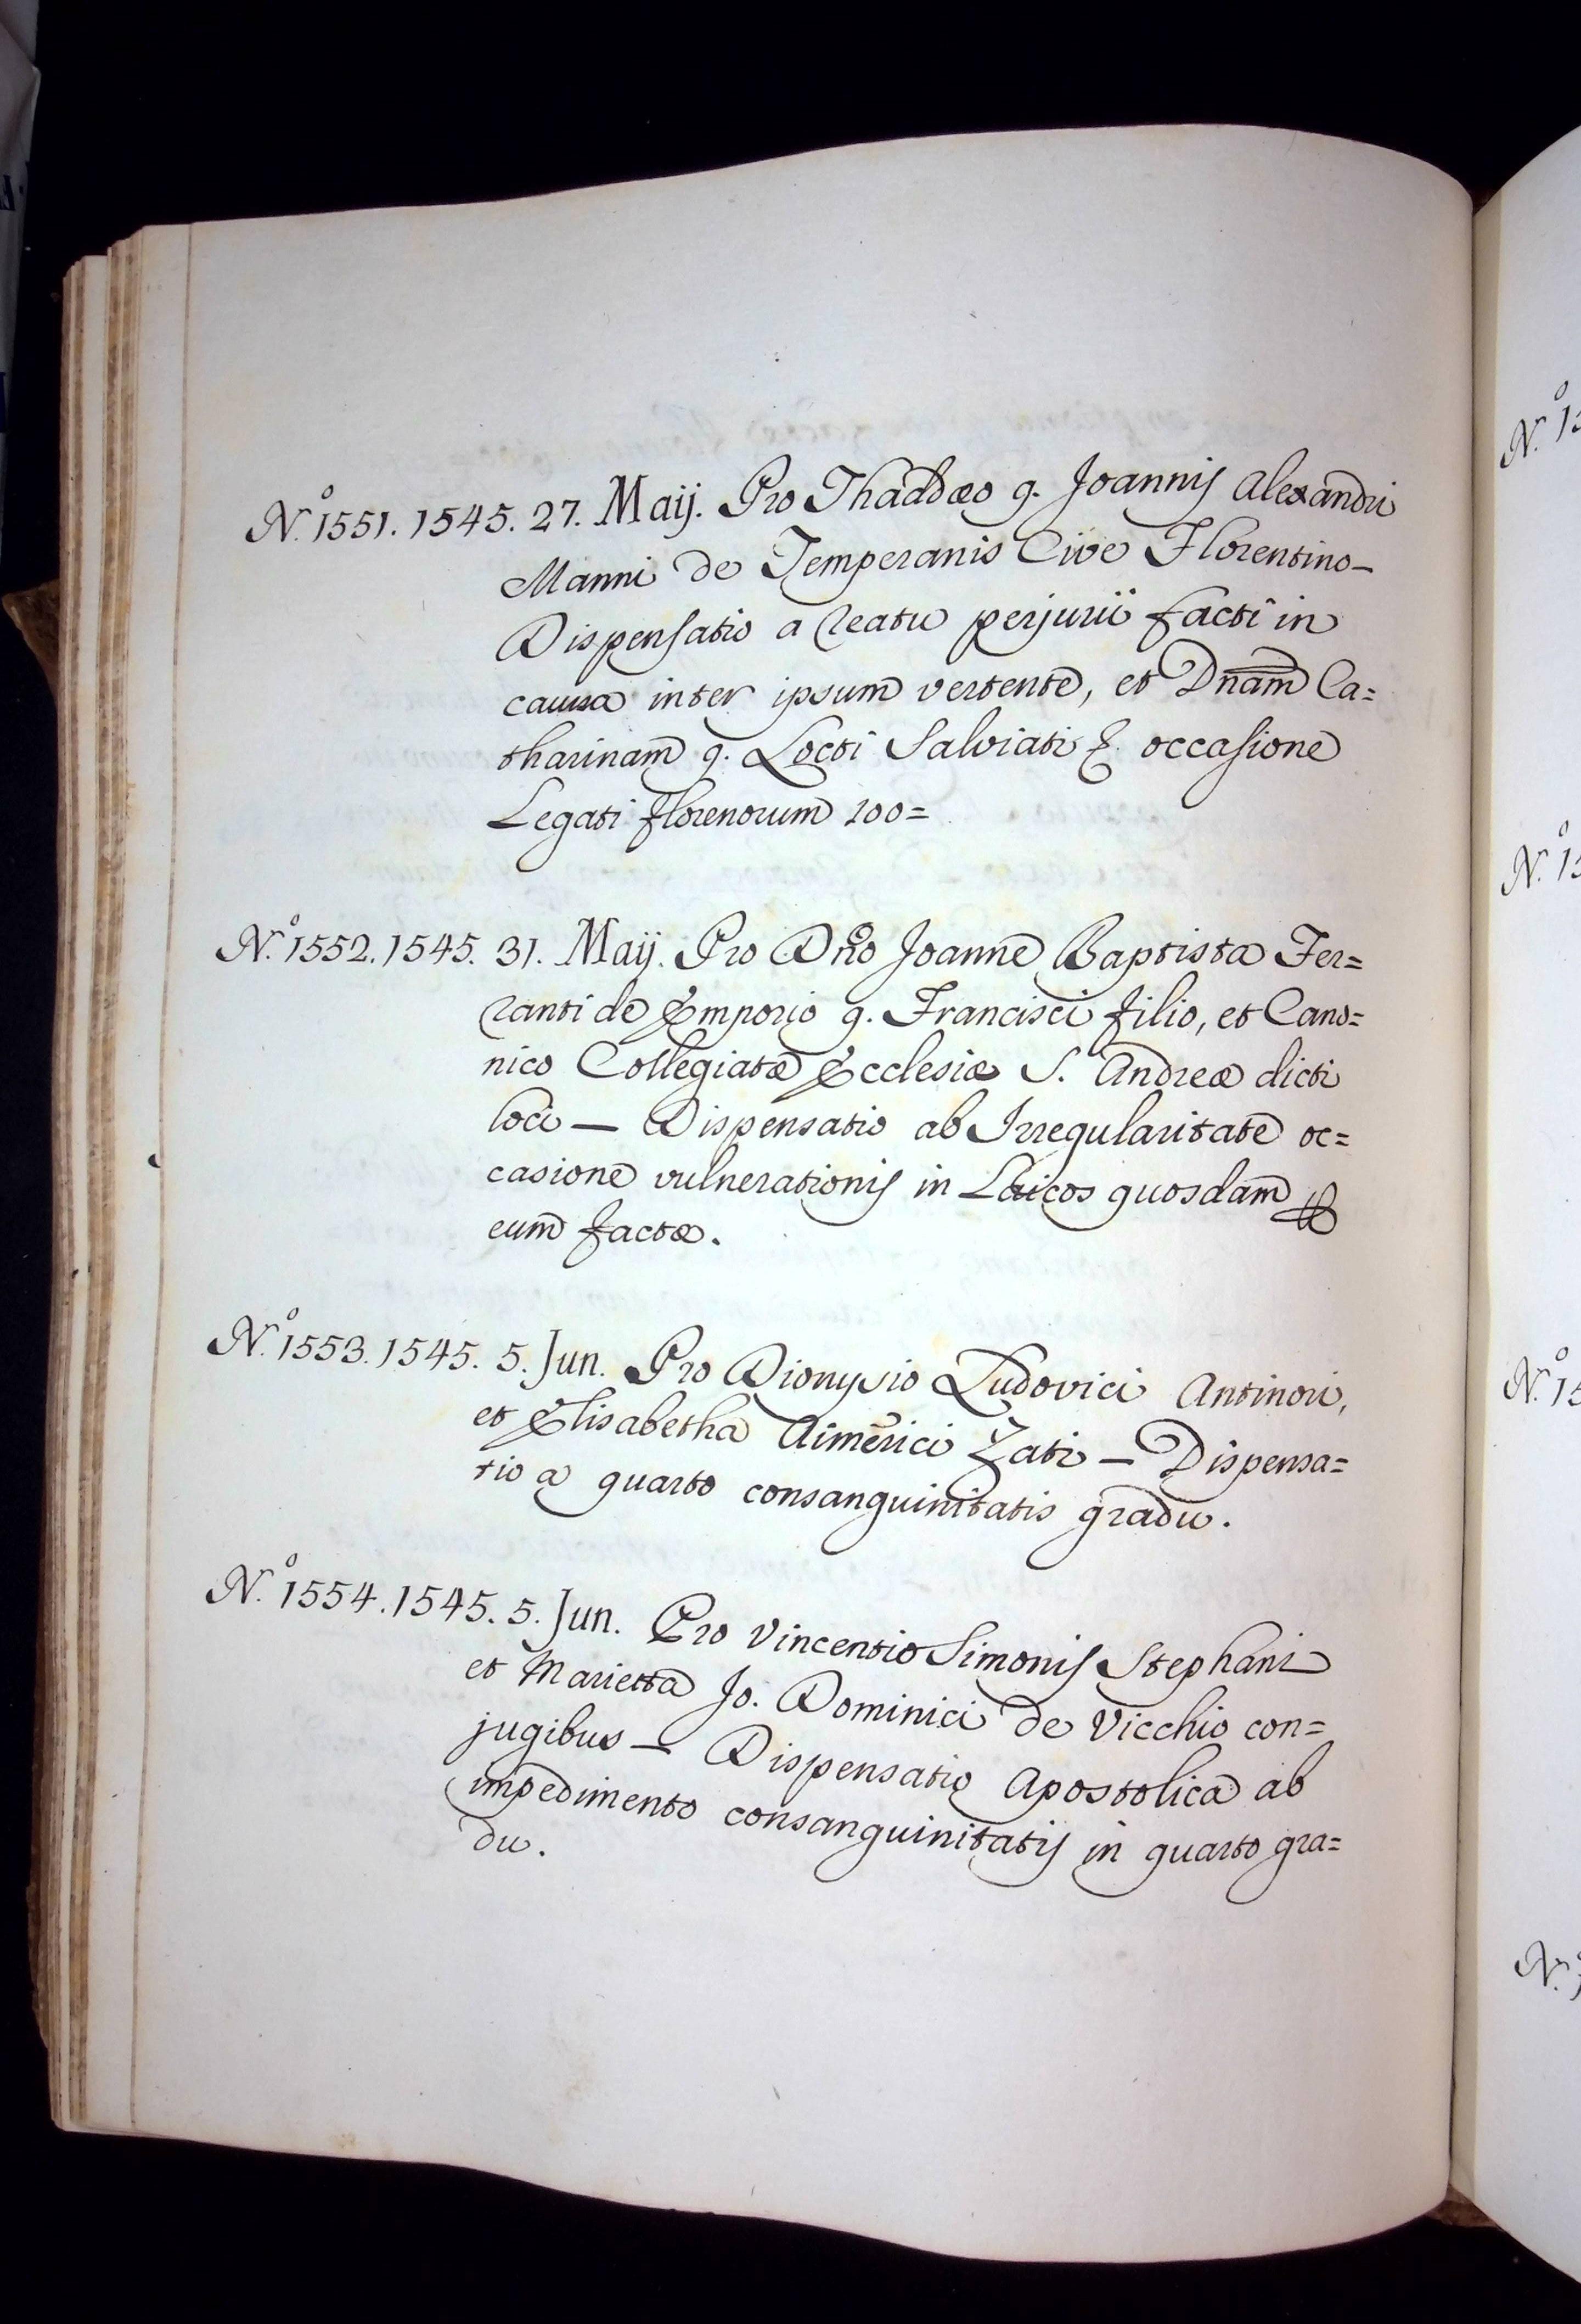 N.º 1551. 1545. 27. Maij. Pro Thaddæo q. Joannis Alexandri
Manni de Temperanis Cive Florentino_
Dispensatio a reatu perjurii facti in
causa inter ipsum vertente, et Dnam Ca=
tharinam q. Locti Salviati & occasione
Legati florenorum 100=
N.º 1552. 1545. 31. Maij. Pro Dño Joanne Baptista Fer=
ranti de Emporio q. Francisci filio, et Cano=
nico Collegiatæ Ecclesiæ S. Andreæ dicti
loci — Dispensatio ab Irregularitate oc=
casione vulnerationis in Laicos quosdam
eum factæ.
N.º 1553. 1545. 5. Jun. Pro Dionysio Ludovici Antinori,
et Elisabetha Aimerici Zati — Dispensa=
tio a quarto consanguinitatis gradu.
N.º 1554. 1545. 5. Jun. Pro Vincentio Simonis Stephani
et Marietta Jo. Dominici de Vicchio con=
jugibus — Dispensatio Apostolica ab
impedimento consanguinitatis in quarto gra=
du.